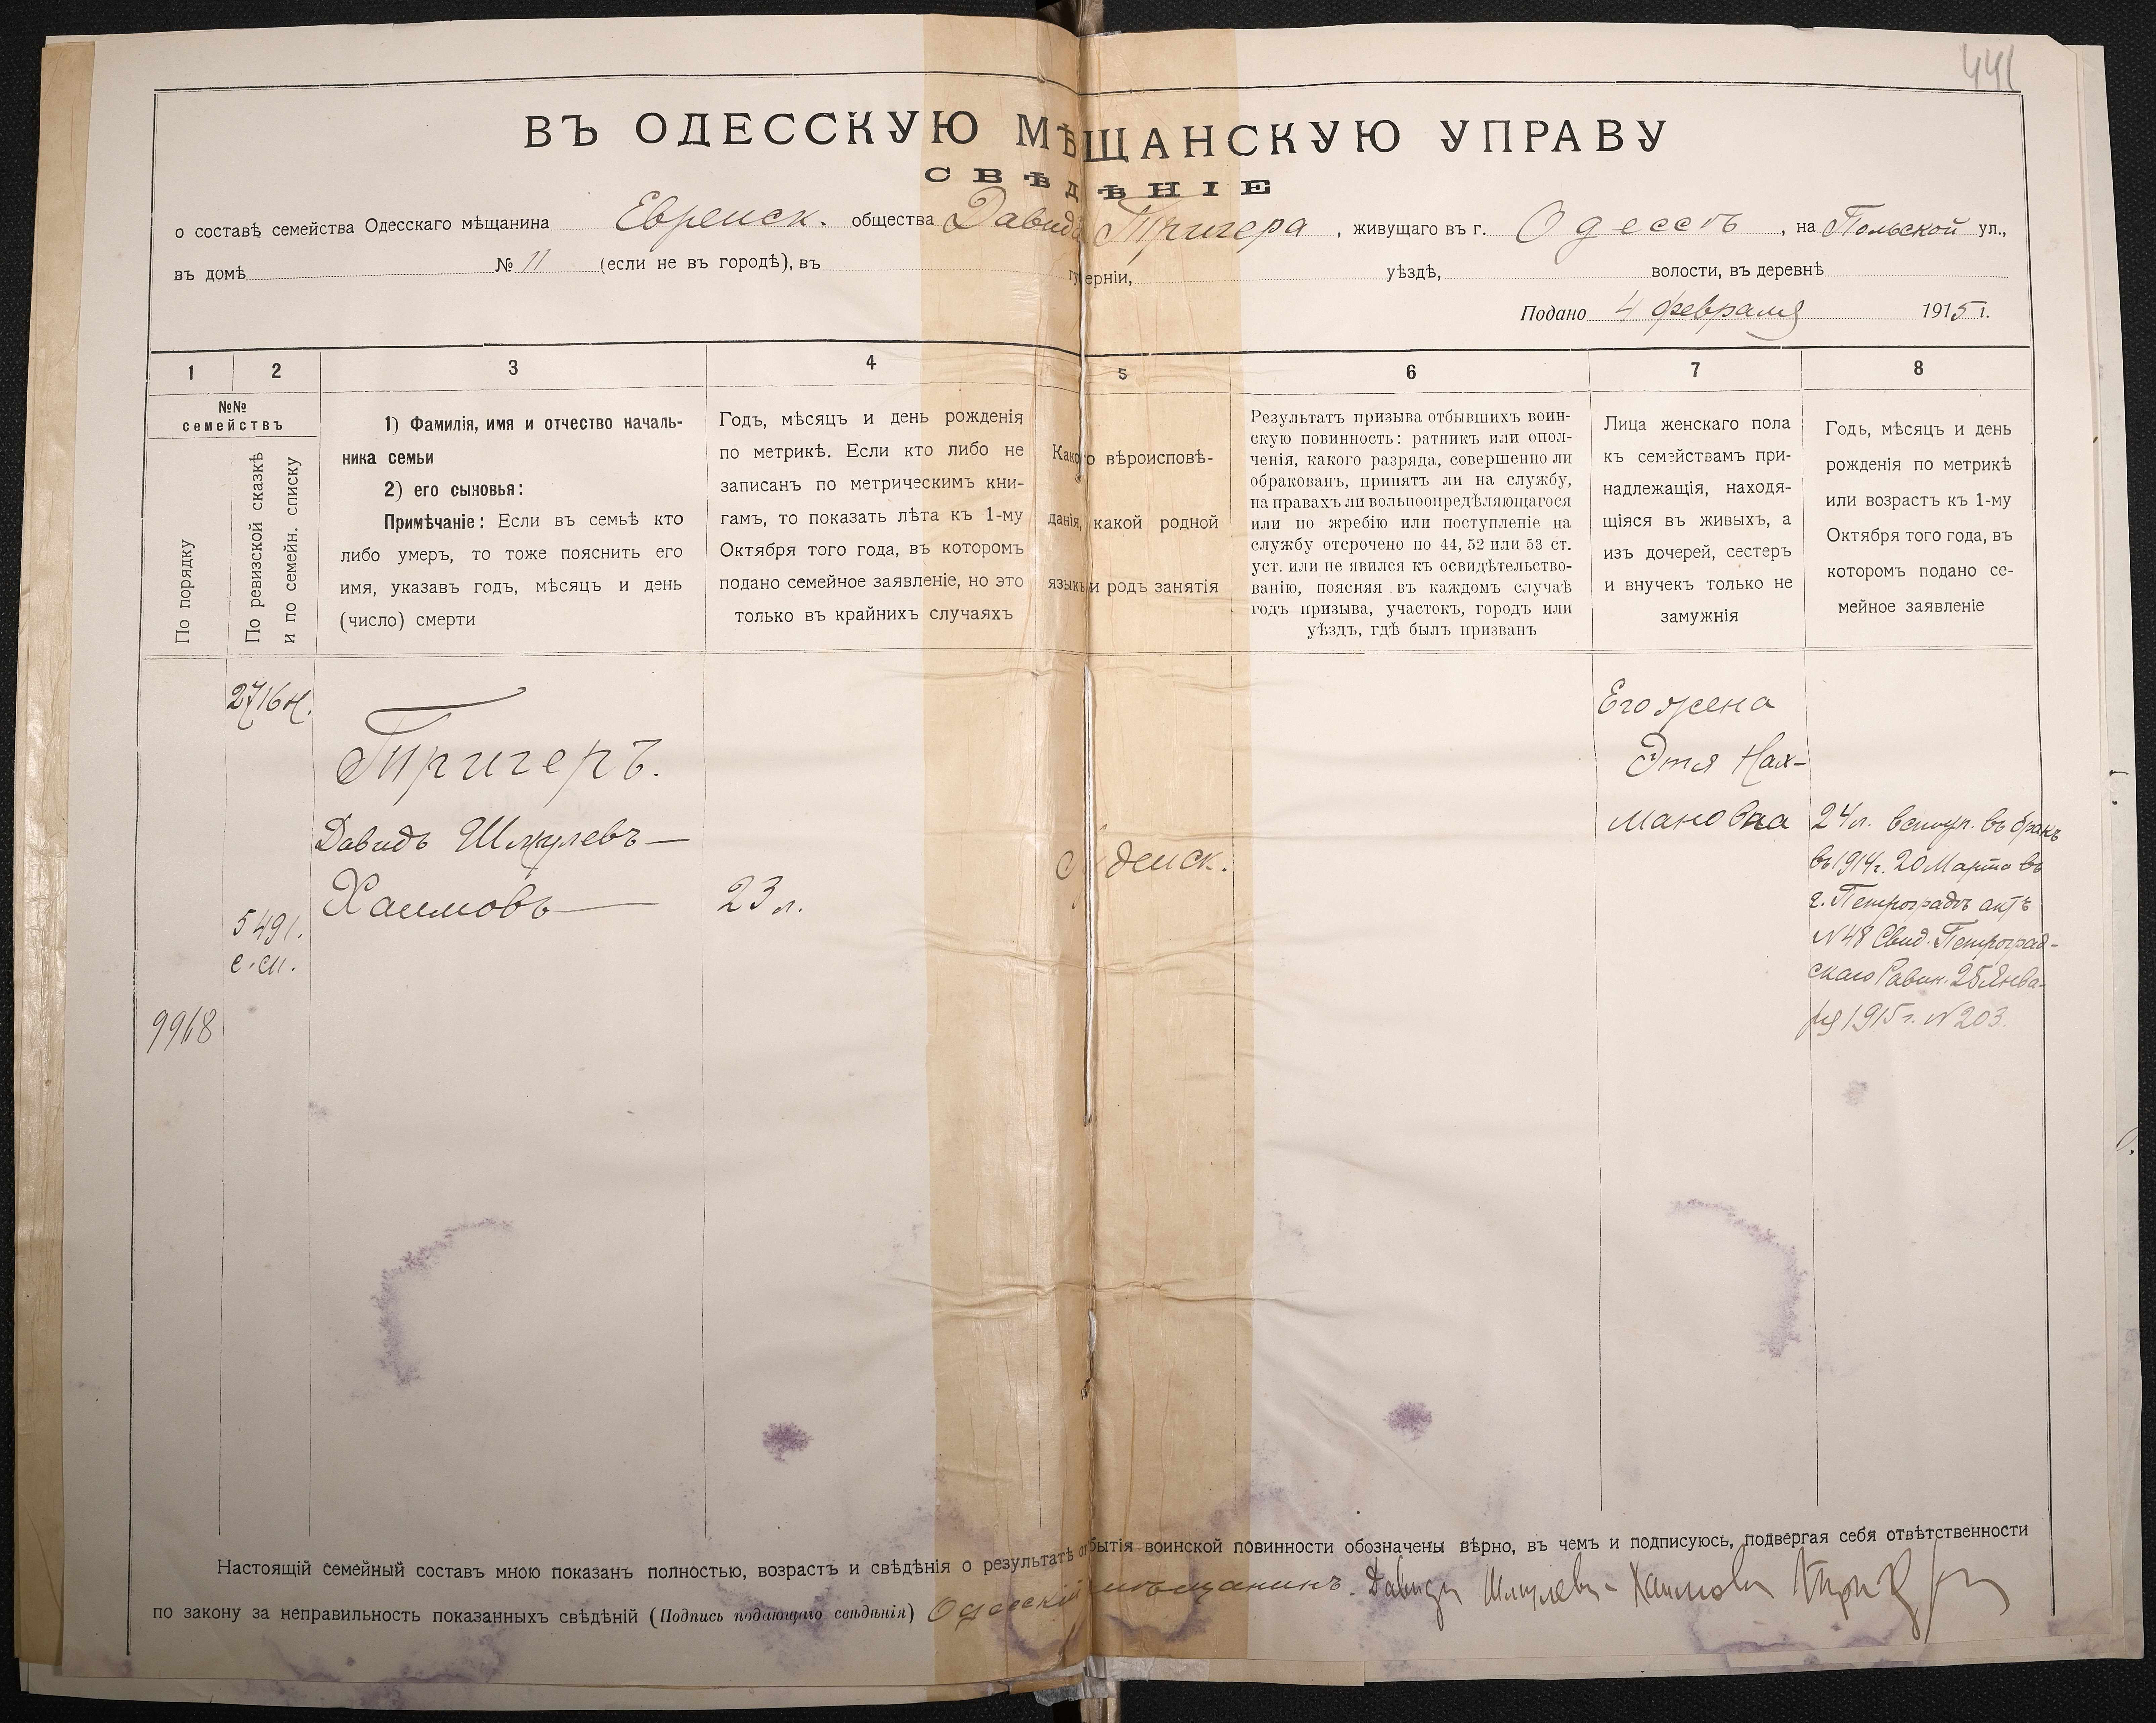 441
ВЪ ОДЕССКУЮ МѢЩАНСКУЮ УПРАВУ
СВѢДѢНІЕ
о составѣ семейства Одесскаго мѣщанина Евреиск. общества Давида Тригера, живущаго въ г. Одессѣ, на Польской ул.,
въ домѣ № 11 (если не въ городѣ), въ губерніи, уѣздѣ, волости, въ деревнѣ
Подано 4 февраля 1915 г.
1 2 3 4 5 6 7 8
№№
семействъ
По порядку
По ревизской сказкѣ
и по семейн. списку
1) Фамилія, имя и отчество началь-
ника семьи
2) его сыновья:
Примѣчаніе: Если въ семьѣ кто
либо умеръ, то тоже пояснить его
имя, указавъ годъ, мѣсяцъ и день
(число) смерти
Годъ, мѣсяцъ и день рожденія
по метрикѣ. Если кто либо не
записанъ по метрическимъ кни-
гамъ, то показать лѣта къ 1-му
Октября того года, въ которомъ
подано семейное заявленіе, но это
только въ крайнихъ случаяхъ
Какого вѣроисповѣ-
данія, какой родной
языкъ и родъ занятія
Результатъ призыва отбывшихъ воин-
скую повинность: ратникъ или опол-
ченія, какого разряда, совершенно ли
обракованъ, принятъ ли на службу,
на правахъ ли вольноопредѣляющагося
или по жребію или поступленіе на
службу отсрочено по 44, 52 или 53 ст.
уст. или не явился къ освидѣтельство-
ванію, поясняя въ каждомъ случаѣ
годъ призыва, участокъ, городъ или
уѣздъ, гдѣ былъ призванъ
Лица женскаго пола
къ семействамъ при-
надлежащія, находя-
щіяся въ живыхъ, а
изъ дочерей, сестеръ
и внучекъ только не
замужнія
Годъ, мѣсяцъ и день
рожденія по метрикѣ
или возрастъ къ 1-му
Октября того года, въ
которомъ подано се-
мейное заявленіе
2716 н.
Тригеръ.
Давидъ Шмулевъ—
Хаимовъ— 23 л.
5491.
с.сп.
9968
Іудеиск.
Его жена
Этя Нах-
мановна
24 л. вступ. въ бракъ
въ 1914 г. 20 Марта въ
г. Петроградѣ актъ
№ 48 Свид. Петроград-
скаго Равин. 25 Янва-
ря 1915 г. № 203.
Настоящій семейный составъ мною показанъ полностью, возрастъ и свѣдѣнія о результатѣ отбытія воинской повинности обозначены вѣрно, въ чемъ и подписуюсь, подвергая себя отвѣтственности
по закону за неправильность показанныхъ свѣдѣній (Подпись подающаго свѣдѣнія) Одесскій мѣщанинъ. Давидъ Шмулевъ-Хаимовъ Тригер